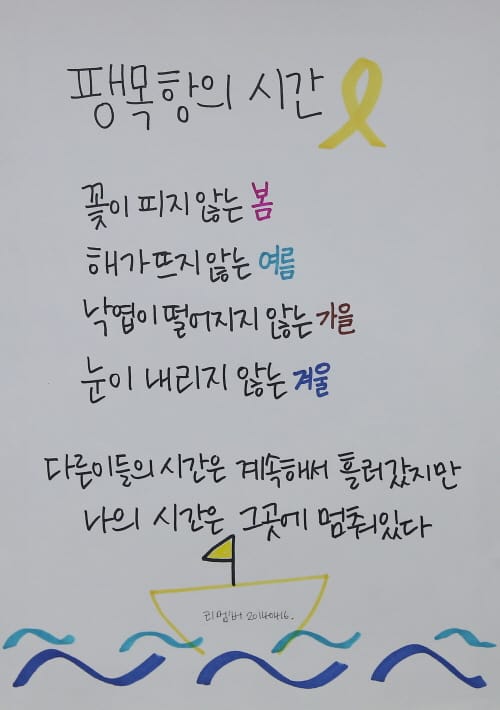 팽목항의 시간
꽃이 피지 않는 봄
해가 뜨지 않는 여름
낙엽이 떨어지지 않는 가을
눈이 내리지 않는 겨울
다른이들의 시간은 계속해서 흘러갔지만
나의 시간은 그곳에 멈춰있다
리멤버 20140416.